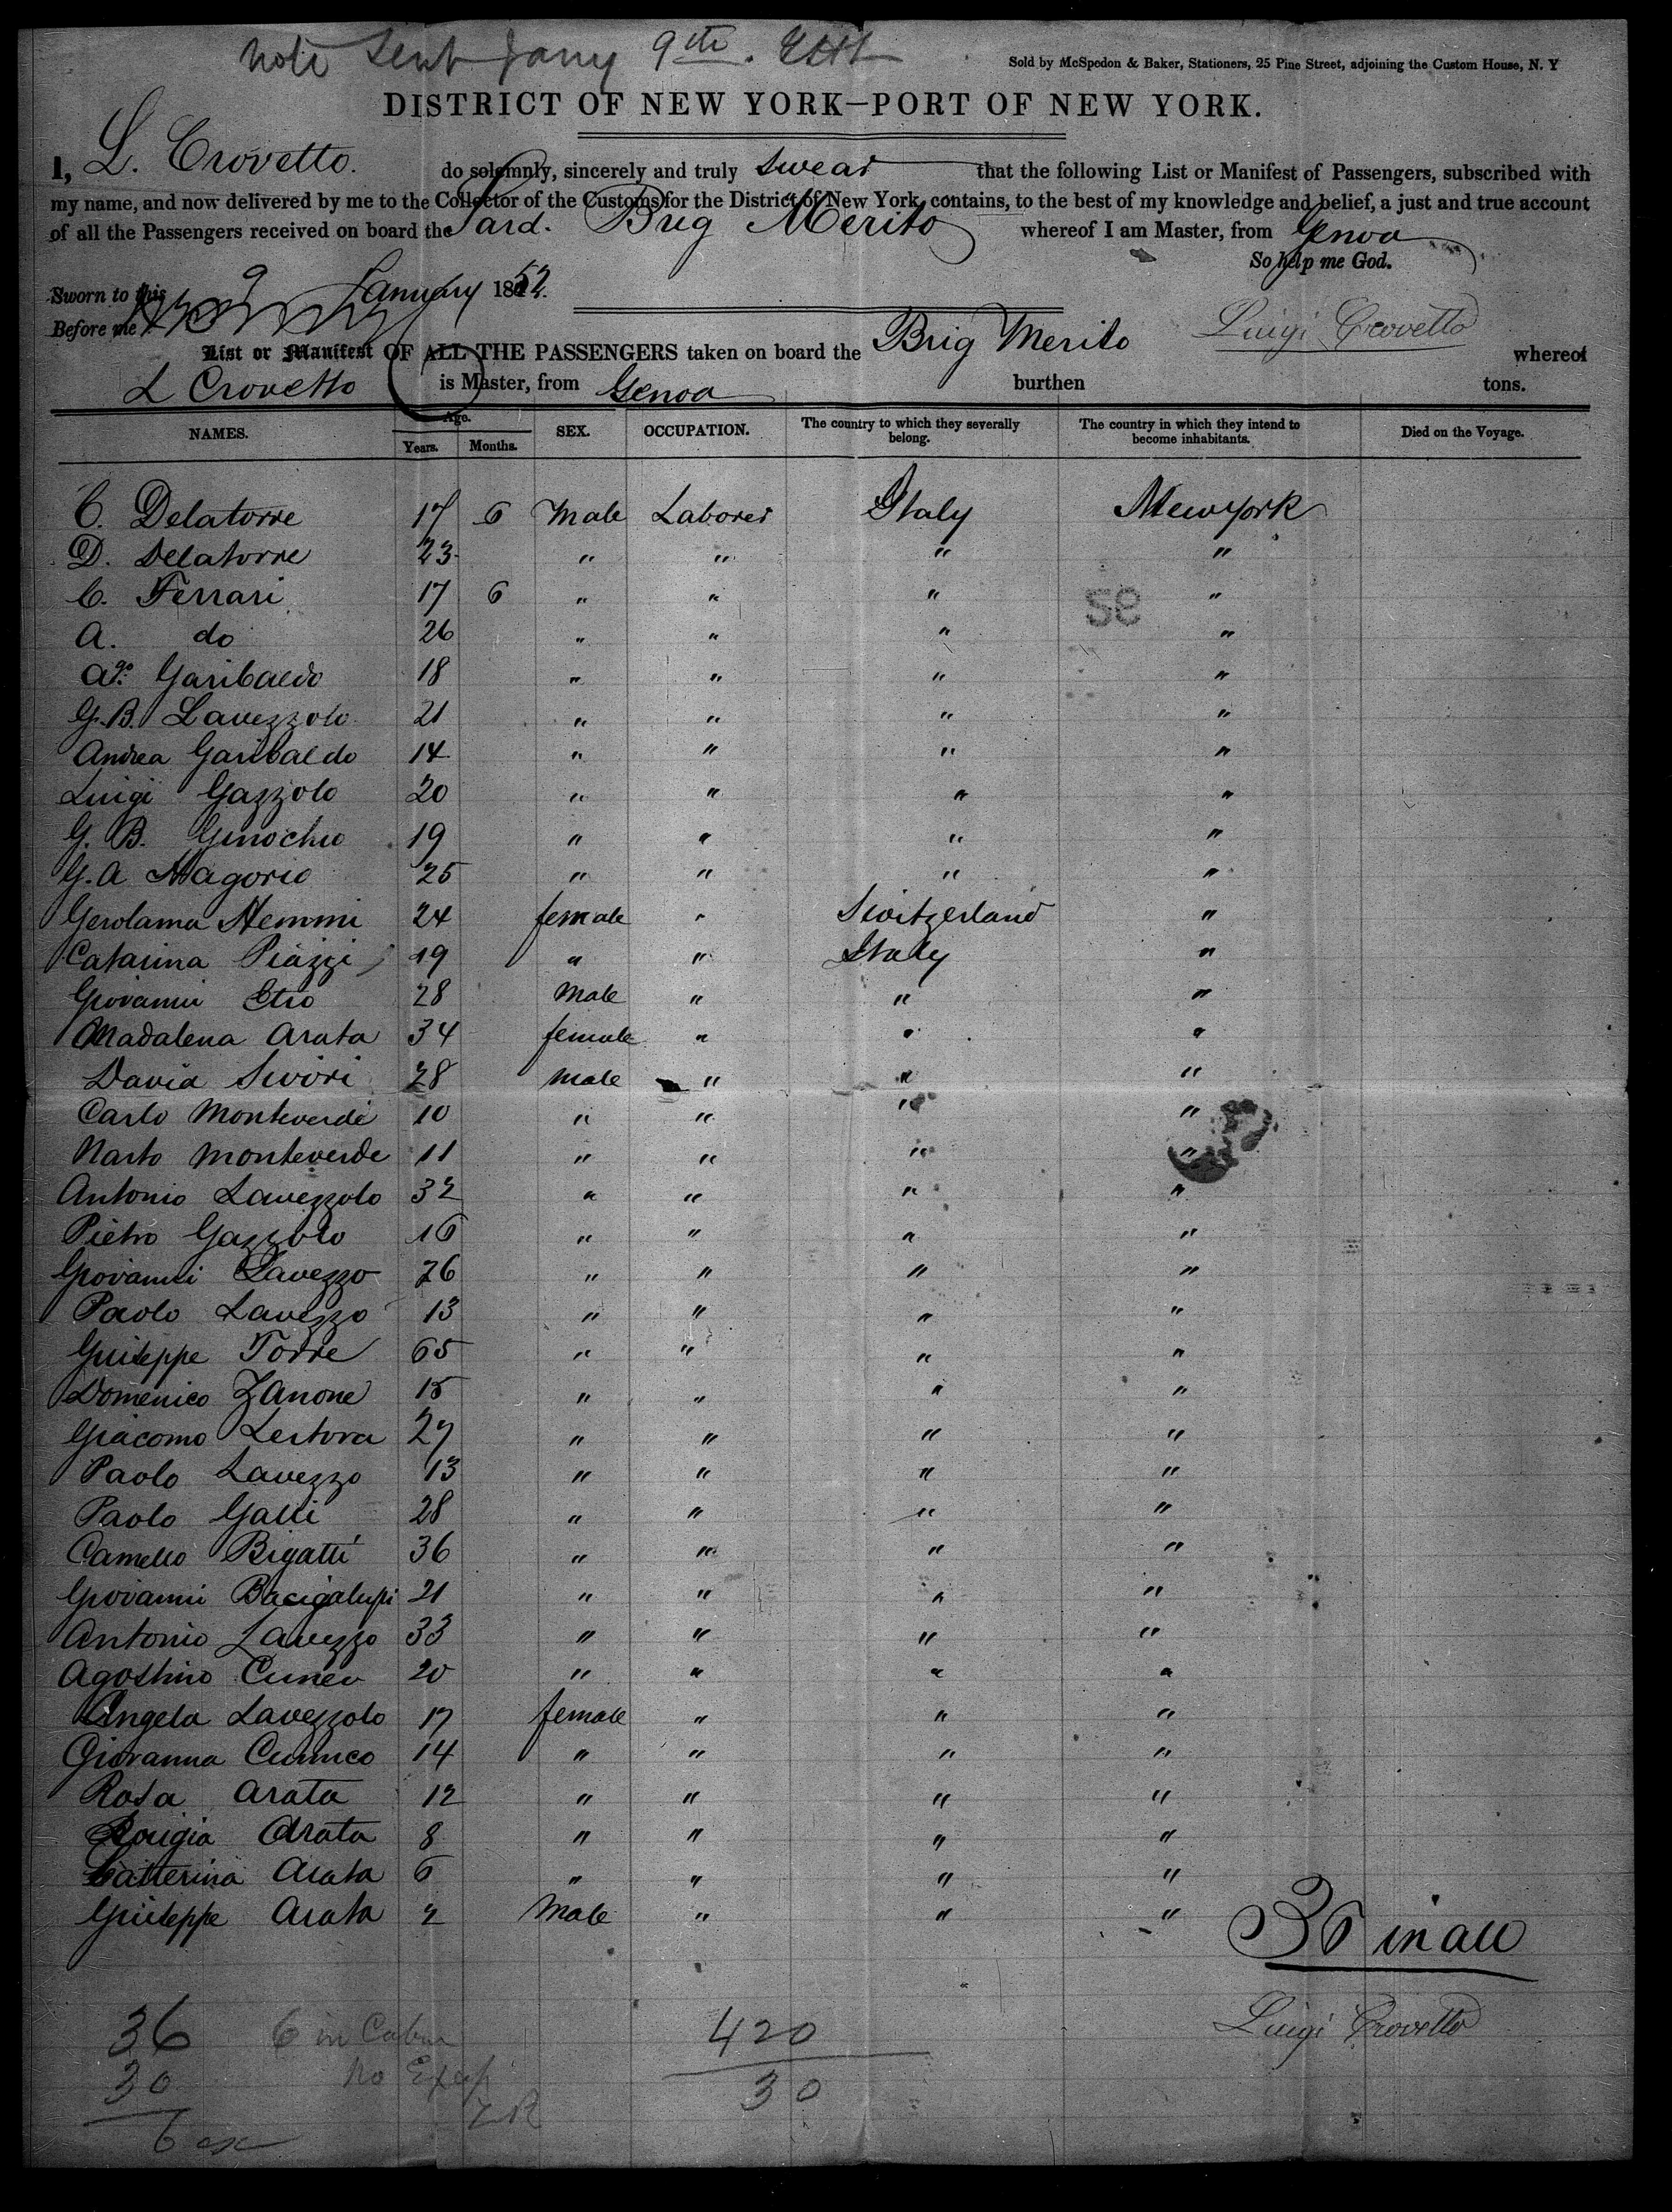 Note Sent Jany 9th.
Sold by McSpedon & Baker, Stationers, 25 Pine Street, adjoining the Custom House, N. Y
DISTRICT OF NEW YORK—PORT OF NEW YORK.
I, L. Crovetto. do solemnly, sincerely and truly swear that the following List or Manifest of Passengers, subscribed with
my name, and now delivered by me to the Collector of the Customs for the District of New York, contains, to the best of my knowledge and belief, a just and true account
of all the Passengers received on board the Sard. Brig Merito whereof I am Master, from Genoa
So help me God.
Sworn to this 9 January 1852.
Before me
Luigi Crovetto
List or Manifest OF ALL THE PASSENGERS taken on board the Brig Merito whereof
L Crovetto is Master, from Genoa burthen tons.
NAMES. Age. Years. Months. SEX. OCCUPATION. The country to which they severally belong. The country in which they intend to become inhabitants. Died on the Voyage.
C. Delatorre 17 6 Male Laborer Italy Newyork
D. Delatorre 23 " " " "
C. Ferrari 17 6 " " " "
A. do 26 " " " "
Ago. Garibaldo 18 " " " "
G.B. Lavezzolo 21 " " " "
Andrea Garibaldo 14 " " " "
Luigi Gazzolo 20 " " " "
G. B. Ginochio 19 " " " "
G.A Magorio 25 " " " "
Gerolama Nemmi 24 female " Switzerland "
Catarina Piazzi 19 " " Italy "
Giovanni 28 Male " " "
Madalena Arata 34 female " " "
David Sivori 28 Male " " "
Carlo Monteverde 10 " " " "
Narto Monteverde 11 " " " "
Antonio Lavezzolo 32 " " " "
Pietro Gazzolo 16 " " " "
Giovanni Lavezzo 26 " " " "
Paolo Lavezzo 13 " " " "
Guiseppe Torre 65 " " " "
Domenico Zanone 15 " " " "
Giacomo Lertora 27 " " " "
Paolo Lavezzo 13 " " " "
Paolo Galli 28 " " " "
Camello Bigatti 36 " " " "
Giovanni Bacigalupi 21 " " " "
Antonio Lavezzo 33 " " " "
Agostino Cuneo 20 " " " "
Angela Lavezzolo 17 female " " "
Giovanna 14 " " " "
Rosa Arata 12 " " " "
Louigia Arata 8 " " " "
Catterina Arata 6 " " " "
Guiseppe Arata 2 Male " " "
36 in all
Luigi Crovetto
36 6 in Cabin 420
30 No 30
6